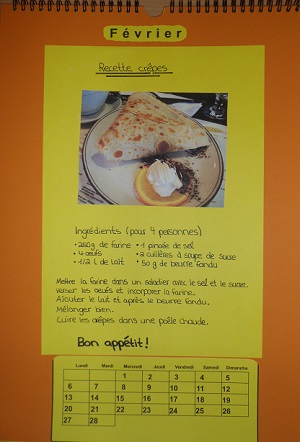 Février
Recette crêpes
Ingrédients (pour 4 personnes)
• 250g de farine • 1 pincée de sel
• 4 œufs • 2 cuillères à soupe de sucre
• 1/2 L de lait • 50 g de beurre fondu
Mettre la farine dans un saladier avec le sel et le sucre.
Verser les œufs et incorporer la farine.
Ajouter le lait et après le beurre fondu.
Mélanger bien.
Cuire les crêpes dans une poêle chaude.
Bon appétit!
Lundi Mardi Mercredi Jeudi Vendredi Samedi Dimanche
1 2 3 4 5
6 7 8 9 10 11 12
13 14 15 16 17 18 19
20 21 22 23 24 25 26
27 28